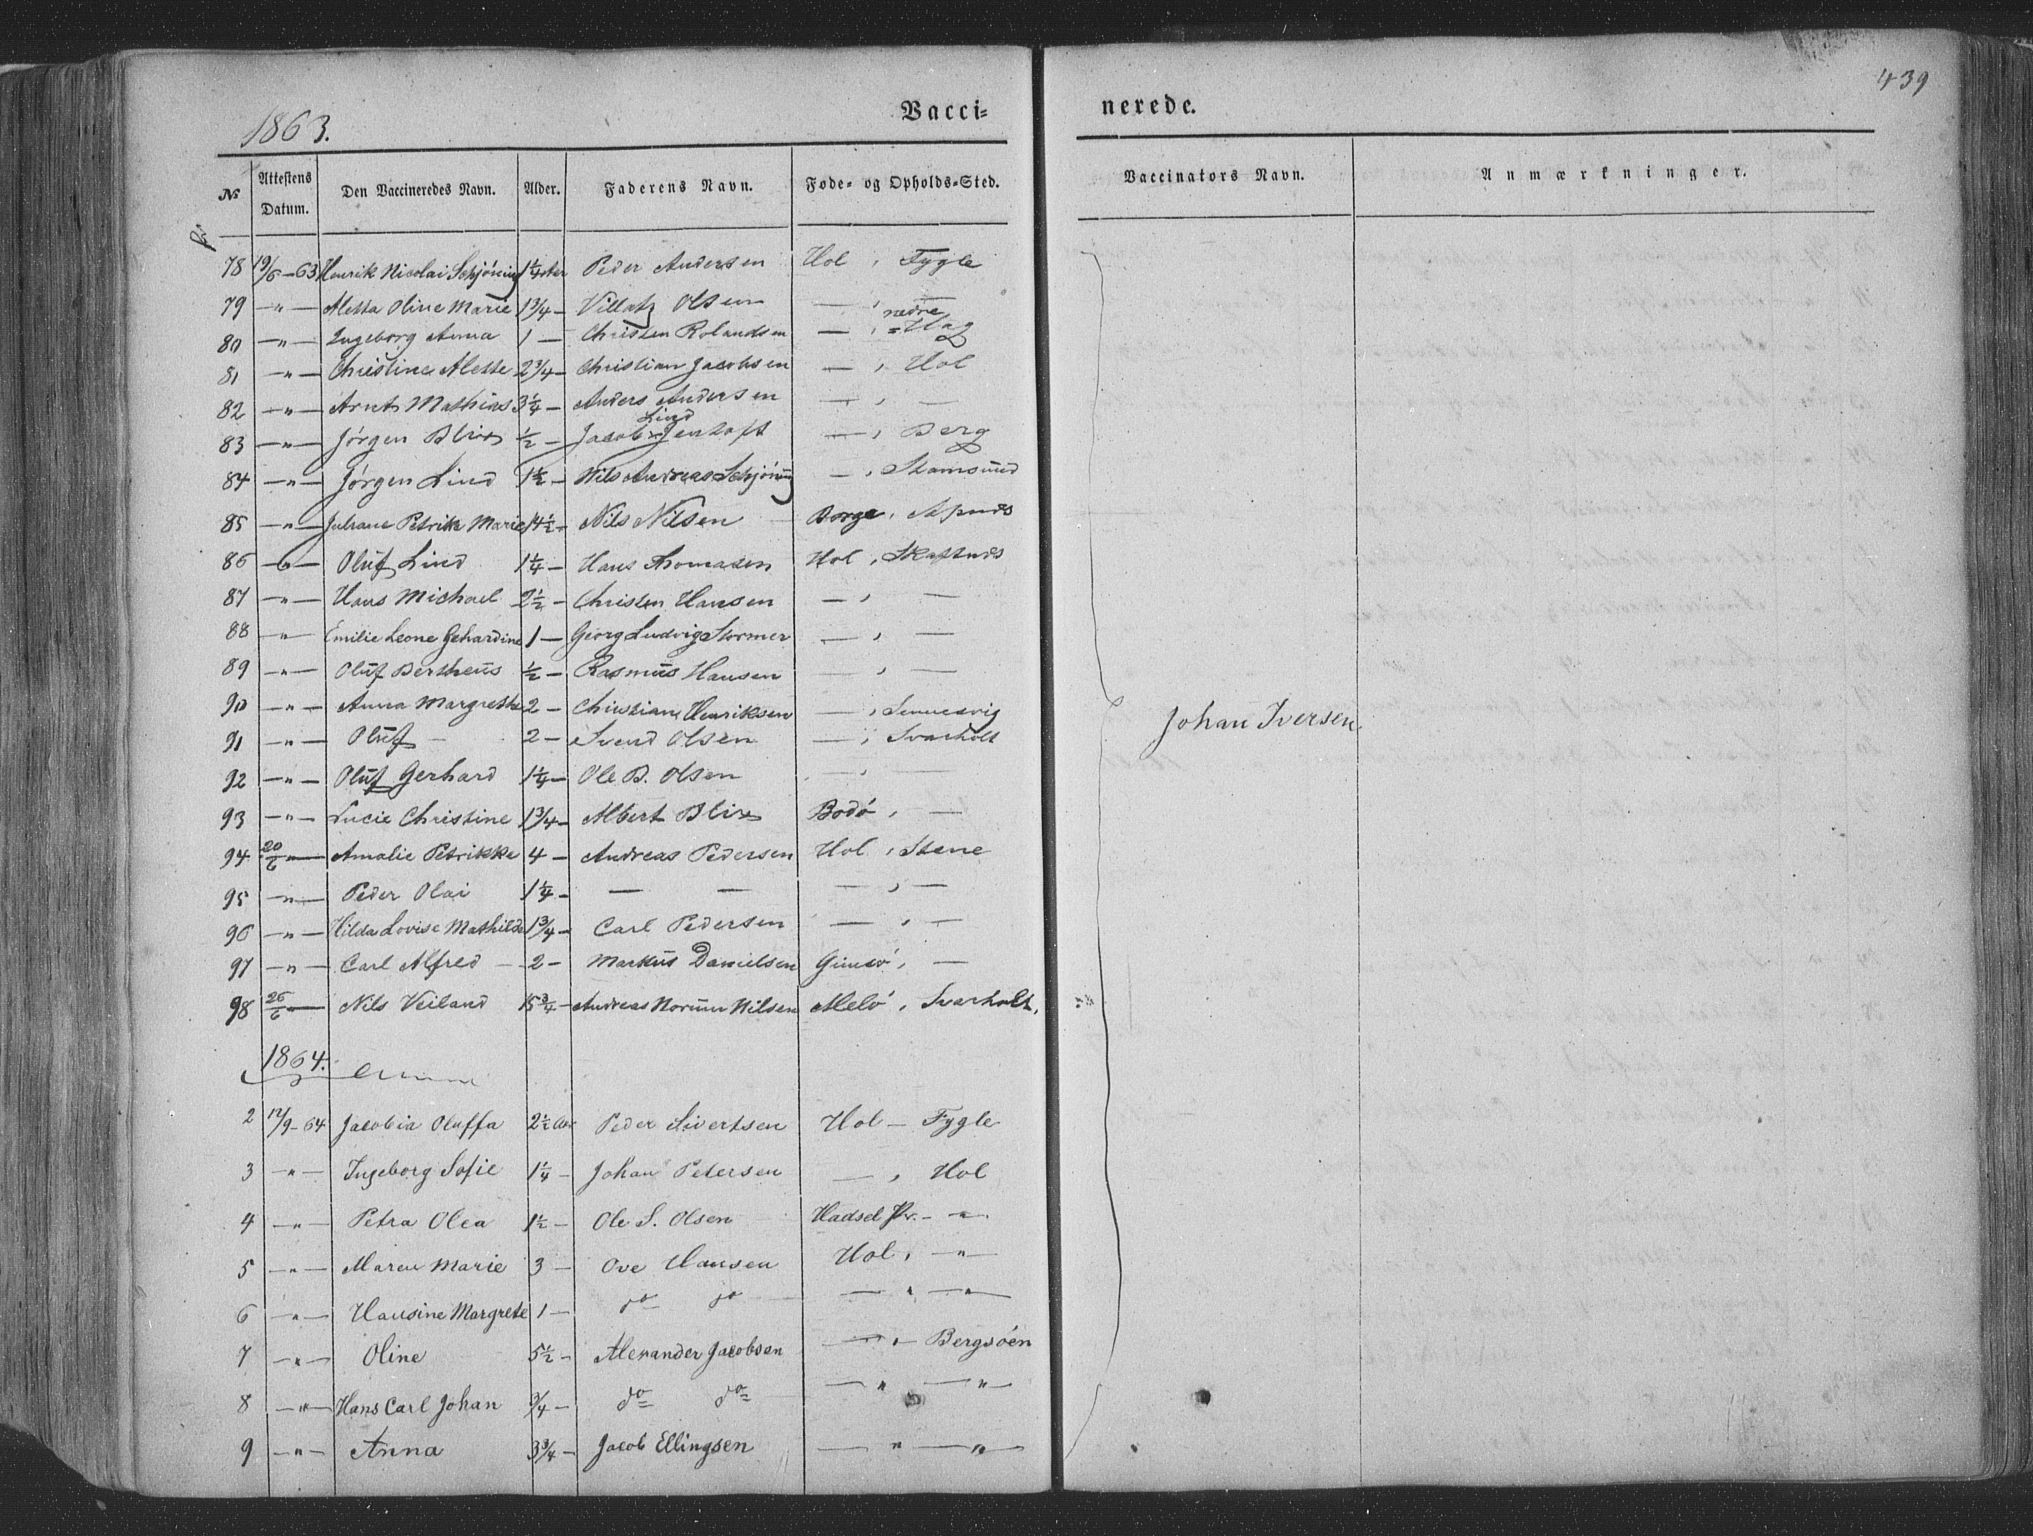 439
1863. Vacci= nerede.
No Attestens Datum. Den Vaccineredes Navn. Alder. Faderens Navn. Føde- og Opholds-Sted. Vaccinators Navn. Anmærkninger.
78 19/6-63 Henrik Nicolai Schjöning 1 1/4 Peder Andersen Hol, Fygle
79 -"- Aletta Oline Marie 1 3/4- Villatz Olsen -, -
80 -"- Ingeborg Anna 1 - Christen Rolandsen -, nedre Hag
81 -"- Christine Alette 2 3/4- Christian Jacobsen -, Hol
82 -"- Arnt Mathias 3 1/4- Anders Andersen -, -
83 -"- Jørgen Blix 1/2- Jacob Lind Jentoft -, Berg
84 -"- Jørgen Lind 1 1/2- Nils Andreas Schjöning -, Stamsund
85 -"- Juliane Petrike Marie 14 1/2- Nils Nilsen Borge,
86 -"- Oluf Lind 1 1/4- Hans Thomasen Hol, Skaftnes
87 -"- Hans Michael 2 1/2- Christen Hansen -, -
88 -"- Emilie Leone Gehardine 1- Georg Ludvig Stormer -, -
89 -"- Oluf Bertheus 1/2- Rasmus Hansen -, -
90 -"- Anna Margrethe 2- Christian Henriksen -, Sennesvig
91 -"- Oluf - 2- Svend Olsen -, Svarholt
92 -"- Oluf Gerhard 1 1/4- Ole B. Olsen -, -
93 -"- Lucie Christine 1 3/4- Albert Blix Bodö, -
94 20/6 "- Amalie Petrikke 4- Andreas Pedersen Hol, Stene
95 -"- Peder Olai 1 1/4- - - -, -
96 -"- Hilda Lovise Mathilde 1 3/4- Carl Pedersen -, -
97 -"- Carl Alfred - 2- Markus Danielsen Gimsö, -
98 26/6 "- Nils Veiland 15 3/4- Andreas Norum Nilsen Melö, Svarholt.
Johan Iversen
1864.
2 12/9-64 Jacobia Oluffa 2 1/2 Peder Sivertsen Hol - Fygle
3 -"- Ingeborg Sofie 1 1/4- Johan Petersen -, Hol
4 -"- Petra Olea 1 1/2- Ole S. Olsen Hadsel Pr. - "-
5 -"- Maren Marie 3- Ove Hansen Hol, -"-
6 -"- Hansine Margrete 1- do do - " -"-
7 -"- Oline 5 1/2- Alexander Jacobsen - " - Bergsöen
8 -"- Hans Carl Johan 3/4- do do - " -"-
9 -"- Anna 3 3/4- Jacob Ellingsen - " -"-